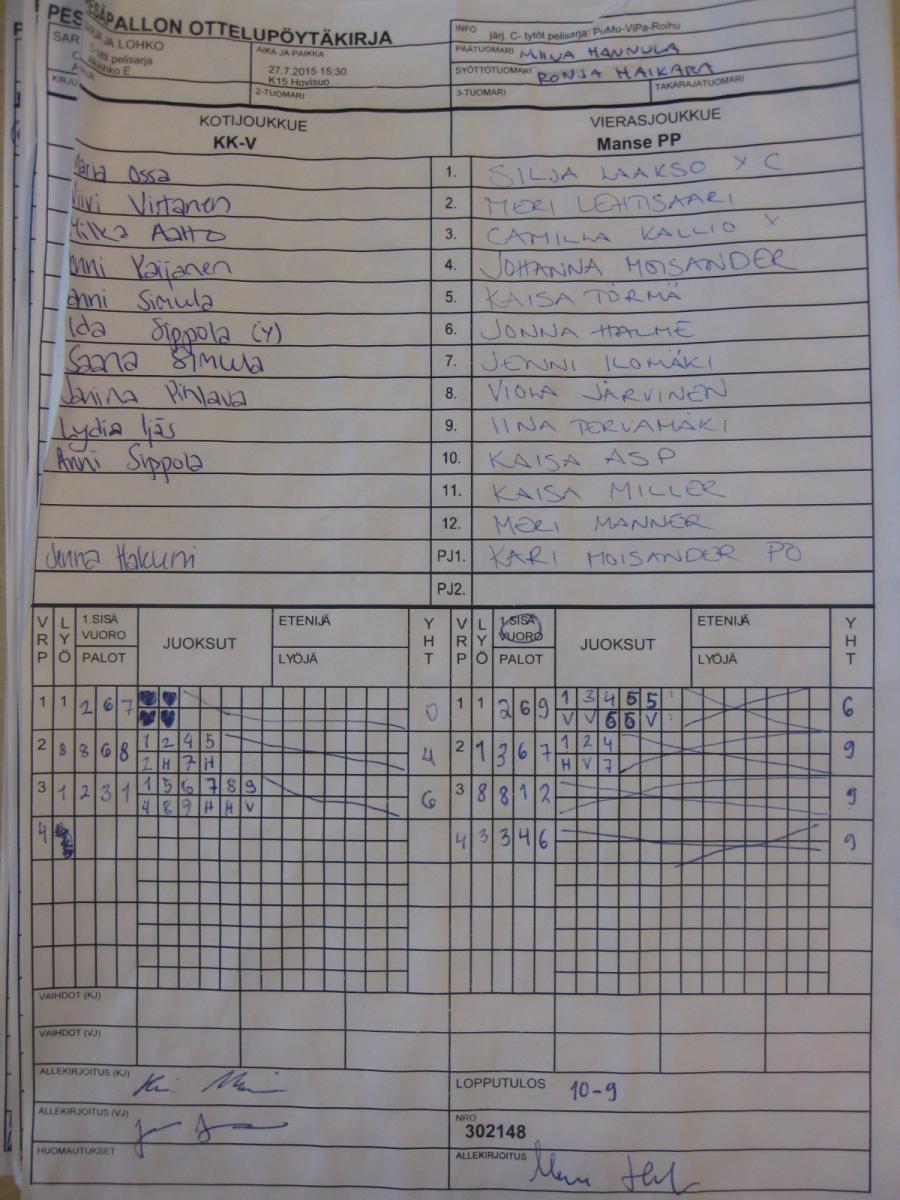 PESÄPALLON OTTELUPÖYTÄKIRJA
INFO järj. C- tytöt pelisarja: PuMu-ViPa-Roihu
SARJA JA LOHKO
pelisarja
lohko E
AIKA JA PAIKKA
27.7.2015 15:30
K15 Hovisuo
PÄÄTUOMARI MIINA HANNULA
SYÖTTÖTUOMARI RONJA HAIKARA
2-TUOMARI
3-TUOMARI
TAKARAJATUOMARI
KOTIJOUKKUE
KK-V
VIERASJOUKKUE
Manse PP
Maria Ossa 1. SILJA LAAKSO X C
Viivi Virtanen 2. MERI LEHTISAARI
Milka Aalto 3. CAMILLA KALLIO X
enni Kaijanen 4. JOHANNA MOISANDER
anni Simula 5. KAISA TÖRMÄ
Ida Sippola (Y) 6. JONNA HALME
Saana Simula 7. JENNI ILOMÄKI
Janina Pihlava 8. VIOLA JÄRVINEN
Lydia Ijäs 9. IINA TERVAMÄKI
Anni Sippola 10. KAISA ASP
11. KAISA MILLER
12. MERI MANNER
Jenna Hakuni PJ1. KARI MOISANDER PO
PJ2.
VRP LYÖ 1.SISÄ VUORO PALOT JUOKSUT ETENIJÄ LYÖJÄ YHT VRP LYÖ 1.SISÄ VUORO PALOT JUOKSUT ETENIJÄ LYÖJÄ YHT
1 1 2 6 7 0 1 1 2 6 9 1 3 4 5 5 6
V V 6 6 V
2 8 8 6 8 1 2 4 5 4 2 1 3 6 7 1 2 4 9
2 H 7 H H V 7
3 1 2 3 1 1 5 6 7 8 9 6 3 8 8 1 2 9
4 8 9 H H V
4 4 3 3 4 6 9
VAIHDOT (KJ)
VAIHDOT (VJ)
ALLEKIRJOITUS (KJ)
LOPPUTULOS 10-9
ALLEKIRJOITUS (VJ)
NRO
302148
HUOMAUTUKSET
ALLEKIRJOITUS